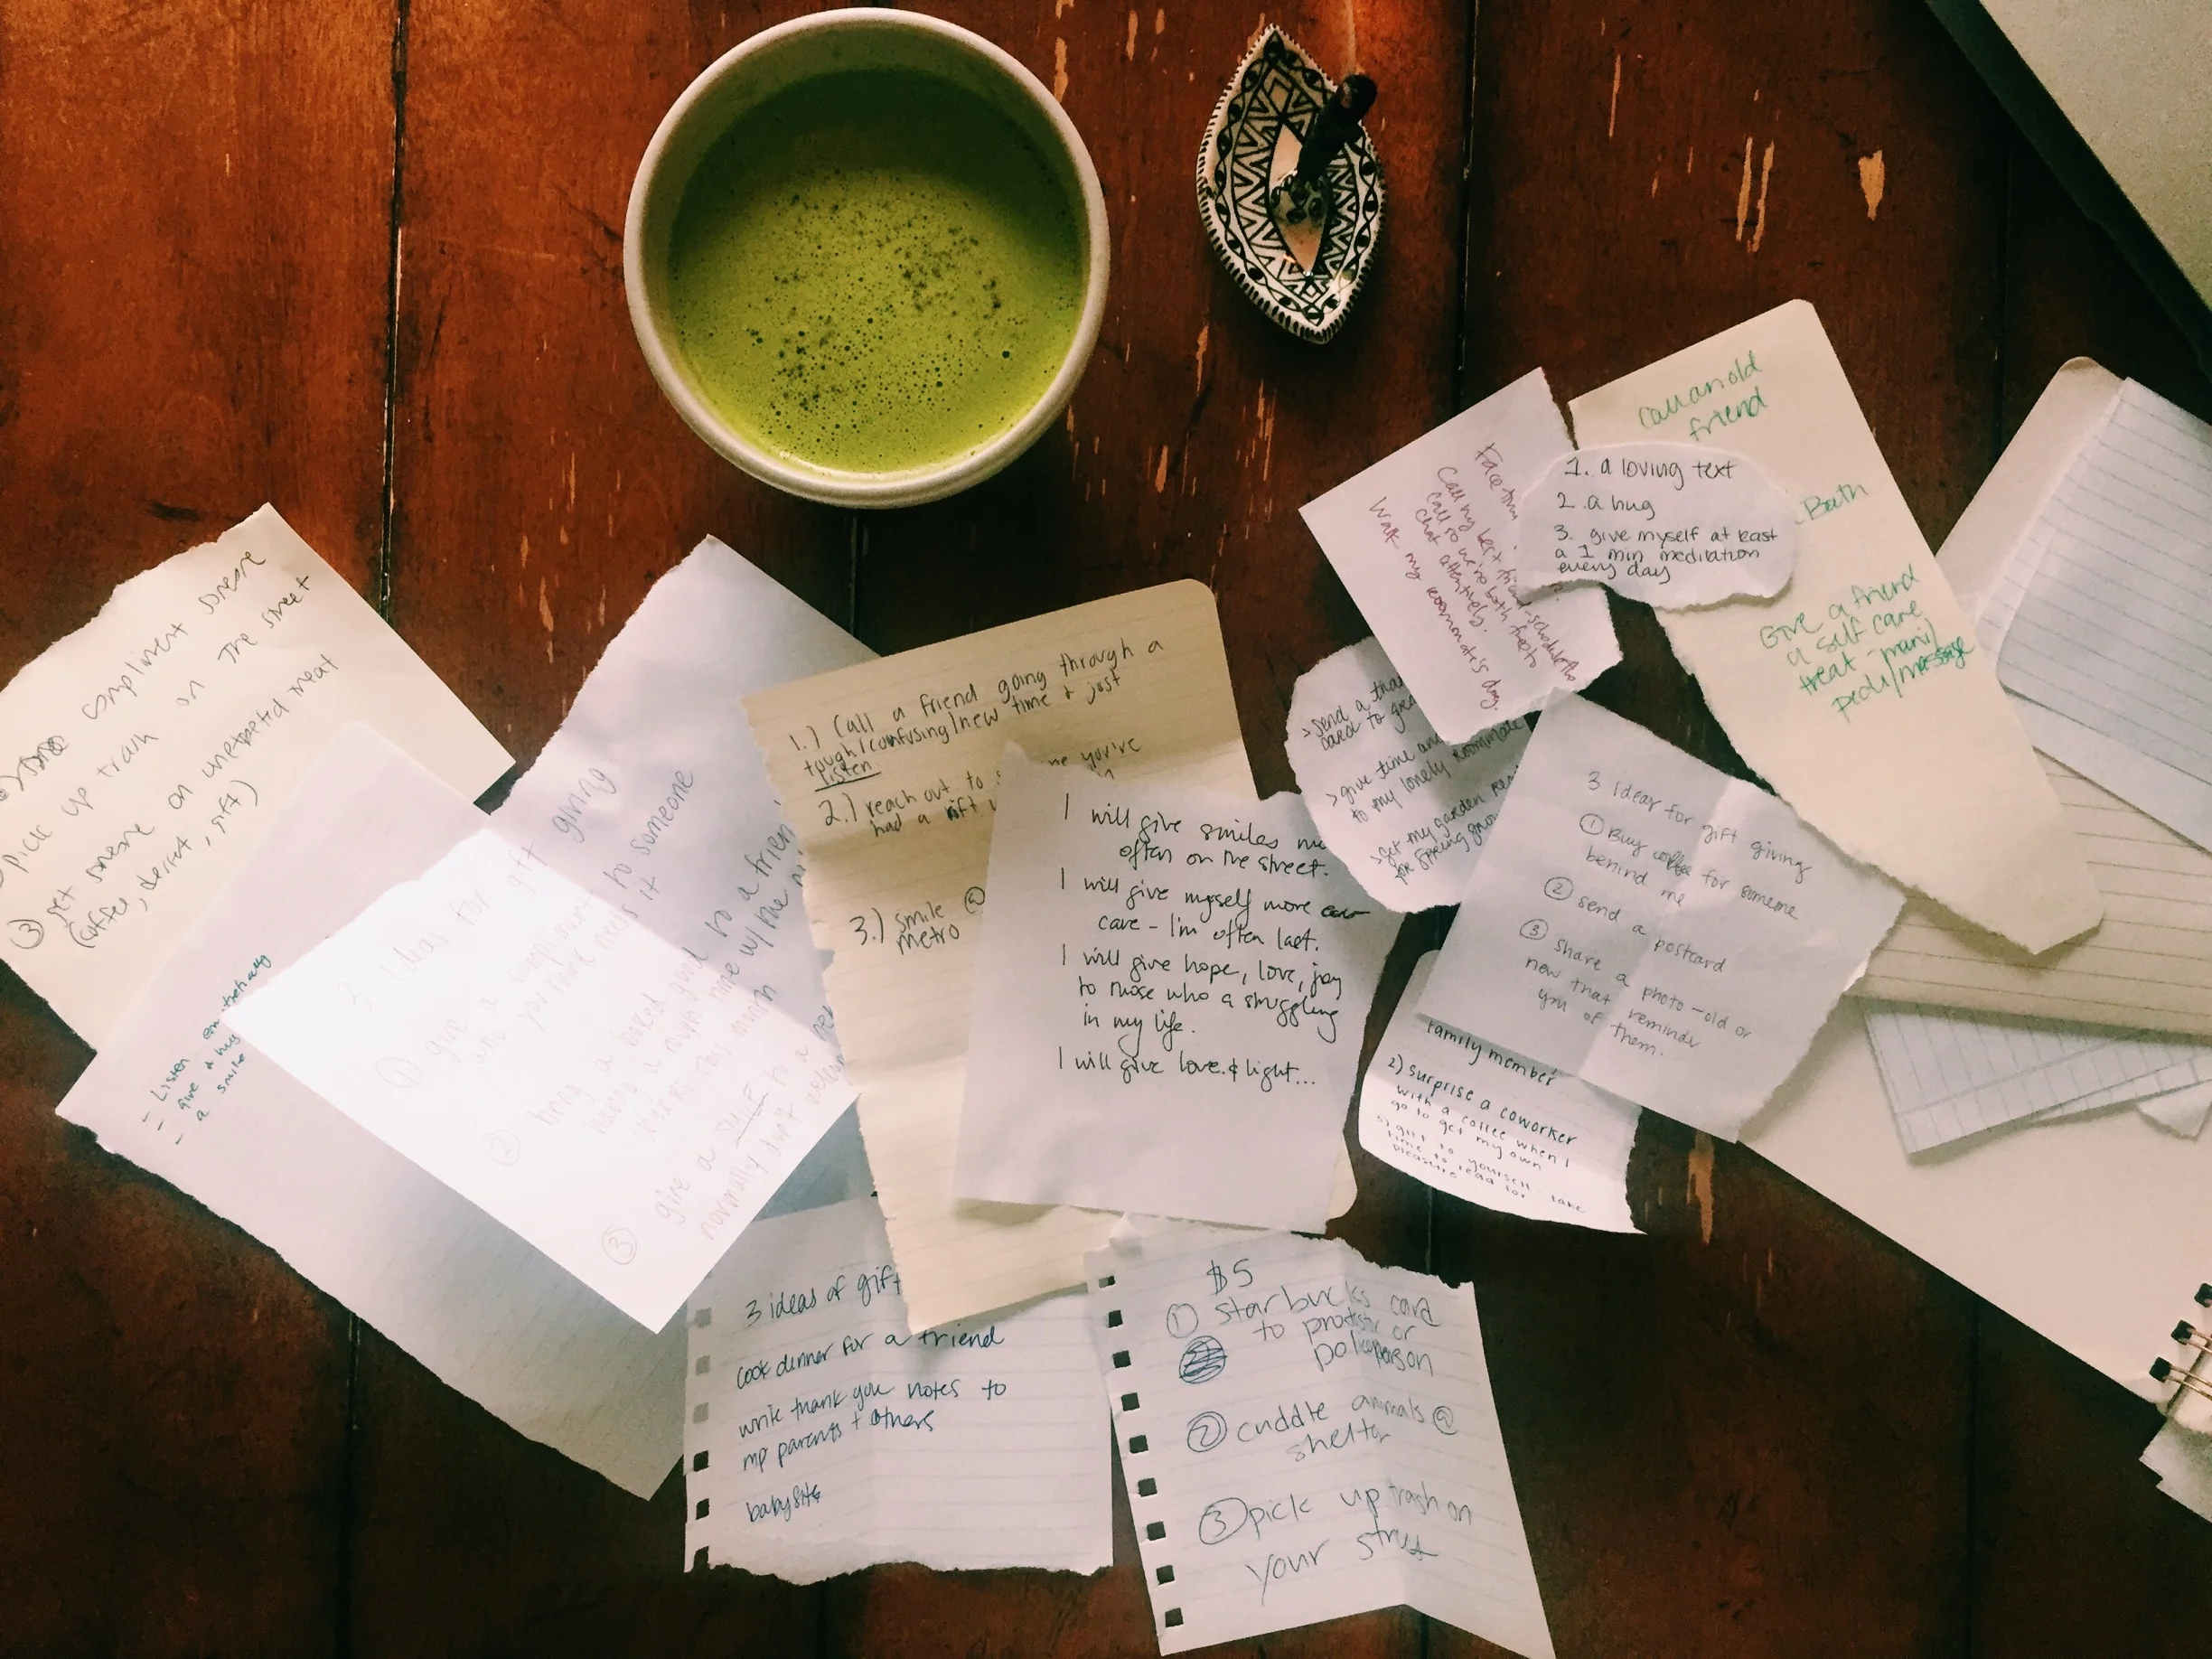 compliment someone
pick up trash on the street
③ get someone an unexpected treat
(coffee, dessert, gift)
- Listen empathetically
- give a hug
- a smile
3 Ideas for gift giving
① give a compliment to someone
who you think needs it
② bring a baked good to a friend
having a rough time w/ the
changes this month
③ give a SMILE to a
normally don't
1.) Call a friend going through a
tough/confusing/new time & just
listen
2.) reach out to you've
had a rift
3.) smile @
metro
I will give smiles
often on the street.
I will give myself more
care - I'm often last.
I will give hope, love, joy
to those who a struggling
in my life.
I will give love & light...
> send a
card to
> give time
to my lonely roommate
> get my garden
for spring
Call my best friend -
call so we're both
chat attentively.
Walk my roommate's dog.
Call an old
friend
Bath
Give a friend
a self care
treat - mani/
pedi/massage
1. a loving text
2. a hug
3. give myself at least
a 1 min meditation
every day
3 ideas for gift giving
① Buy coffee for someone
behind me
② send a postcard
③ share a photo - old or
new that reminds
you of them.
family member
2) surprise a coworker
with a coffee when I
go to get my own
gift to yourself - take
time to read for
pleasure
3 ideas of gift
cook dinner for a friend
write thank you notes to
my parents + others
babysit
$5
① Starbucks card
to protestor or
policeperson
② cuddle animals @
shelter
③ pick up trash on
your street